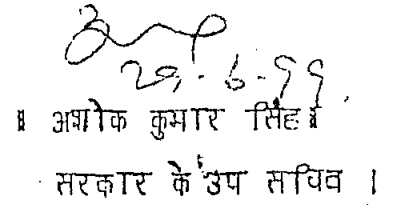 29.6.99
॥ अशोक कुमार सिंह ॥
सरकार के उप सचिव ।